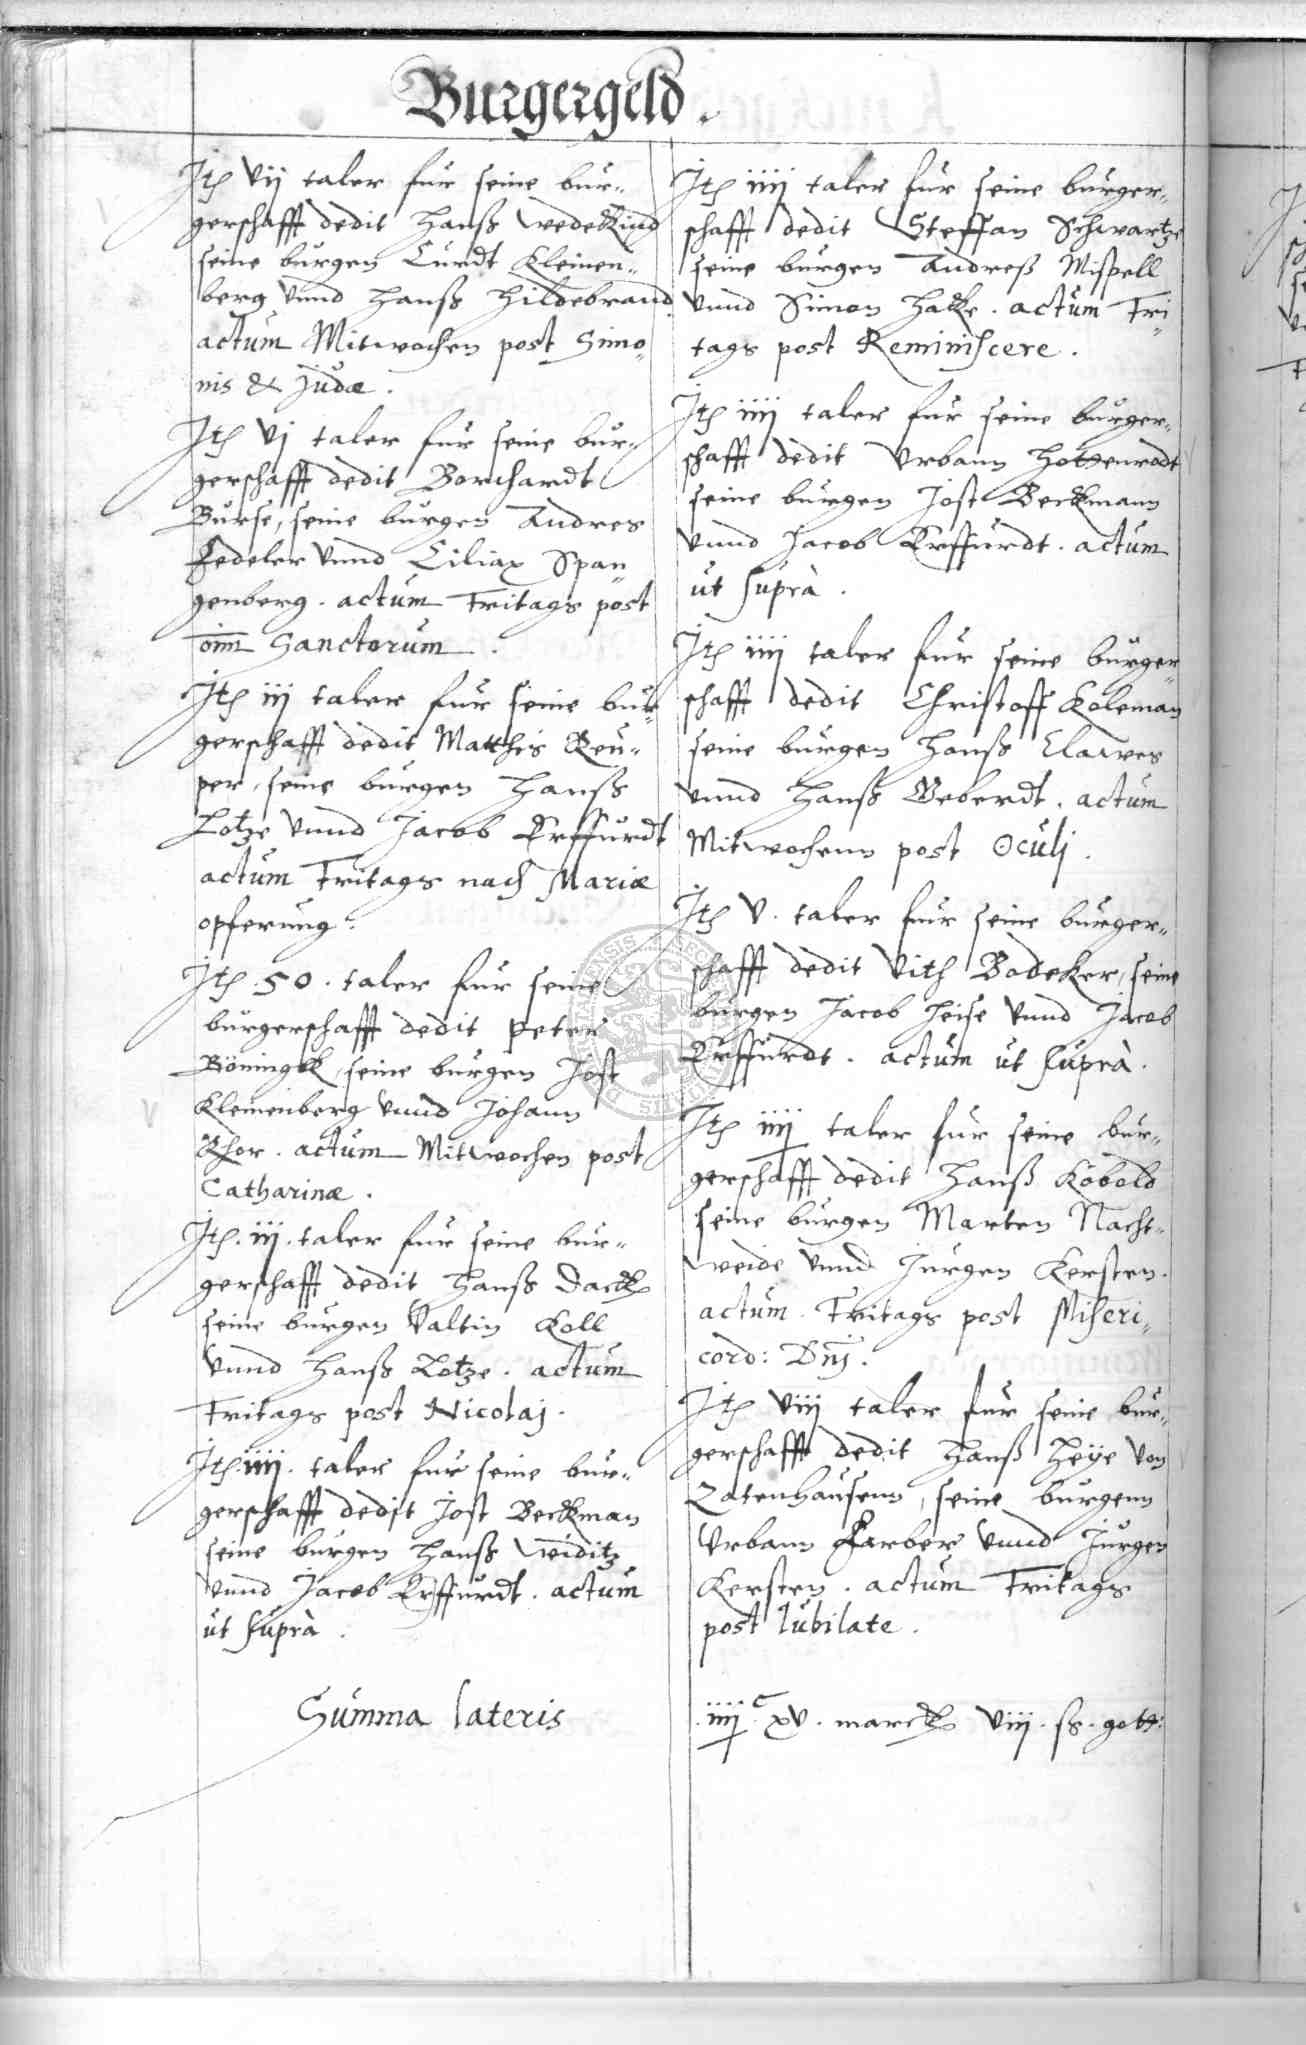 Burgergeld.
Ith vij taler fur seine bur„
gerschafft dedit Hanß wedekind
seine burgen Curdt Kleinen„
berg vnnd Hanß Hildebrand.
actum Mitwochen post Simo„
nis & Judæ.
Ith vj taler fur seine bur„
gerschafft dedit Borchardt
Burse, seine burgen Andres
Fedeler vnnd Ciliax Span„
genberg. actum Fritags post
oim Sanctorum.
Ith iij taler fur seine bur„
gerschafft dedit Matthis Reu„
per, seine burgen Hanß
Lotze vnnd Jacob Erffurdt
actum Fritags nach Mariæ
opferung.
Ith 50. taler fur seine
burgerschafft dedit Peter
Böningk, seine burgen Jost
Kleinenberg vnnd Johann
Rhor. actum Mitwochen post
Catharinæ.
Ith. iij. taler fur seine bur„
gerschafft dedit Hanß
seine burgen Valtin Koll
vnnd Hanß Lotze. actum
Fritags post Nicolaj.
Ith. iiij. taler fur seine bur„
gerschafft dedit Jost Beckman
seine burgen Hanß weiditz
vnnd Jacob Erffurdt. actum
ut suprà.
Summa lateris
Ith iiij taler fur seine burger„
schafft dedit Steffan Schwartze
seine burgen Andreß Mispell
vnnd Simon Hake. actum Fri„
tags post Reminiscere.
Ith iiij taler fur seine burger„
schafft dedit Vrbann Hottenrodt
seine burgen Jost Beckmann
vnnd Jacob Erffurdt. actum
ut suprà.
Ith iiij taler fur seine burger„
schafft dedit Christoff Koleman
seine burgen Hanß Clawes
vnnd Hanß Geberdt. actum
Mitwochenn post Oculj.
Ith v. taler fur seine burger„
schafft dedit Vith Bodeker, seine
burgen Jacob Heise vnnd Jacob
Erffurdt. actum ut suprà.
Ith iiij taler fur seine bur„
gerschafft dedit Hanß Kobold
seine burgen Marten Nacht„
weide vnnd Jurgen Kersten.
actum. Fritags post Miseri„
cord: Dnj.
Ith viij taler fur seine bur„
gerschafft dedit Hanß Heÿe von
Latenhausenn, seine burgenn
Vrbann Farber vnnd Jurgen
Kersten. actum Fritags
post Jubilate.
iiij c xv. marck viij. ß. gott: